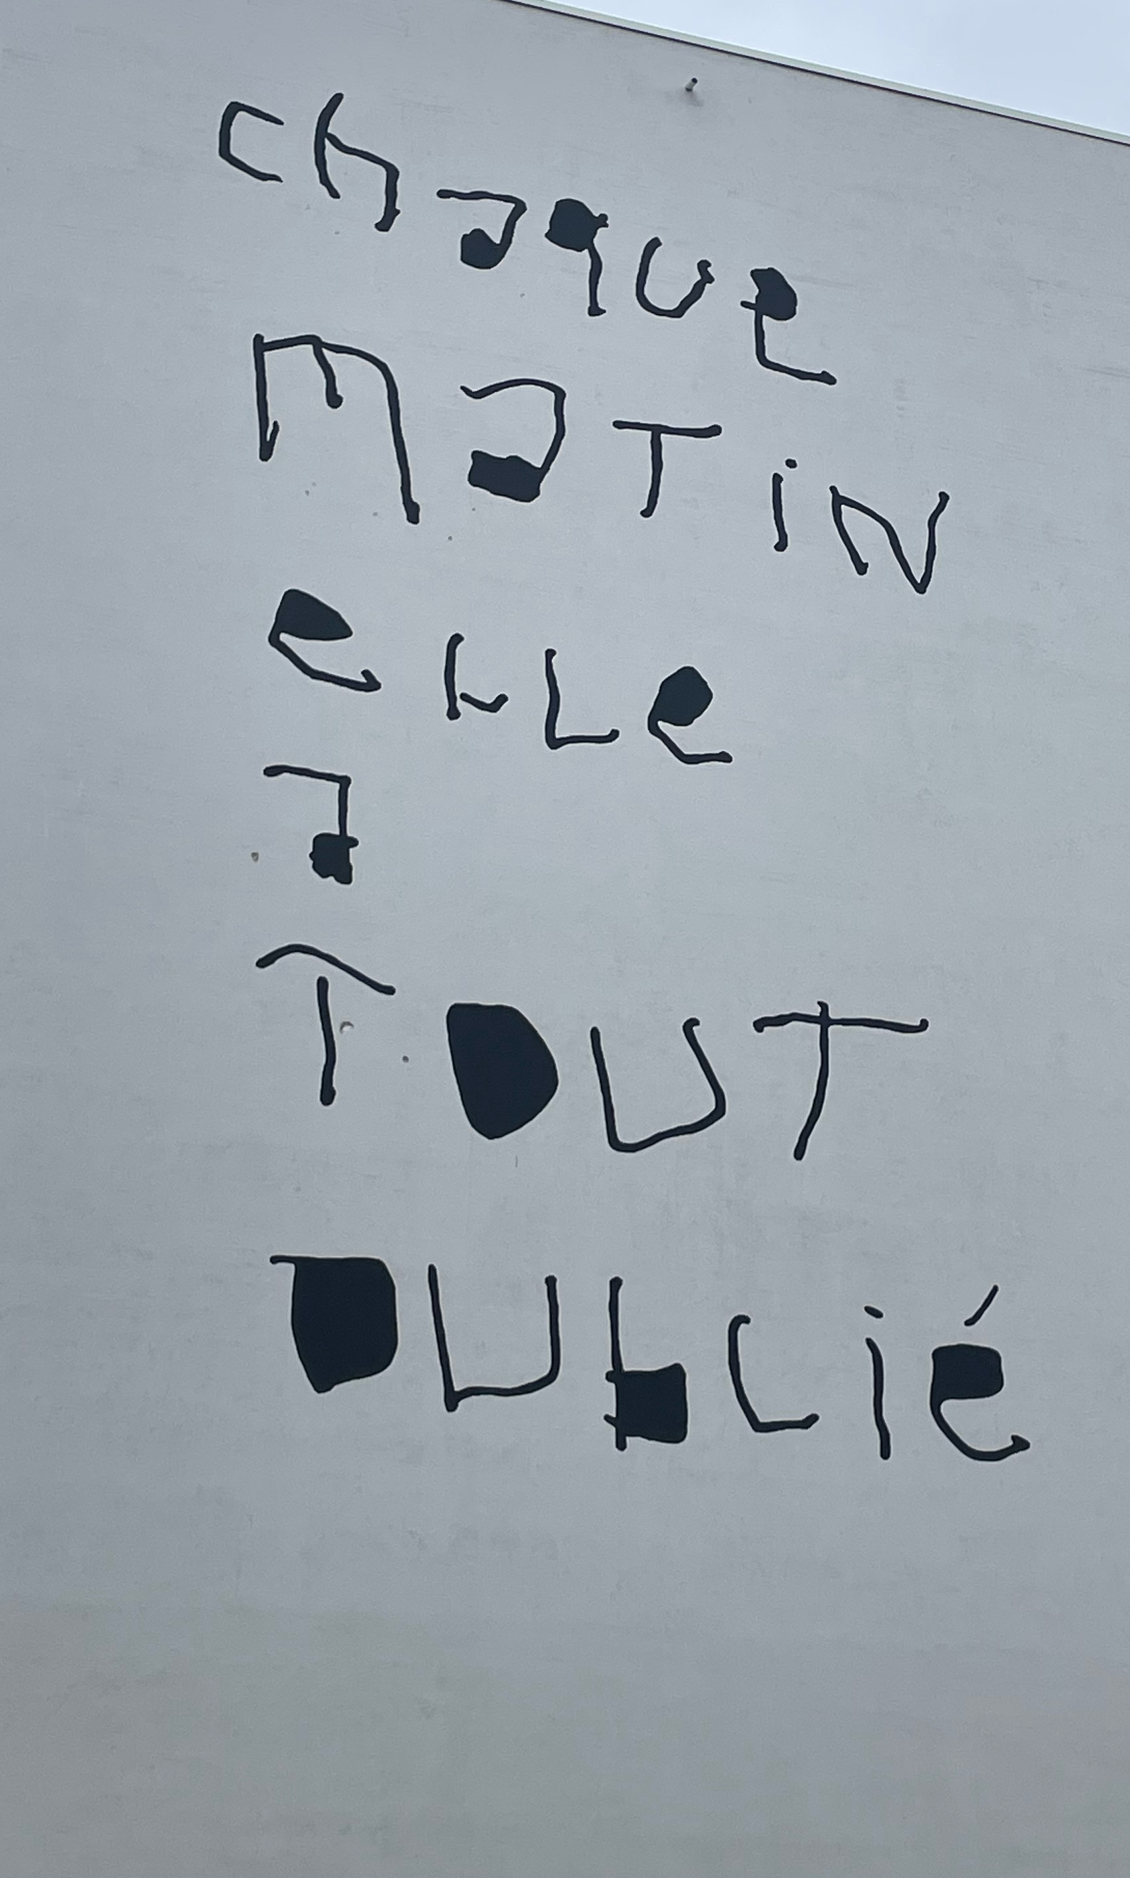 chaque
MaTiN
eLLe
a
TOUT
OUbLié